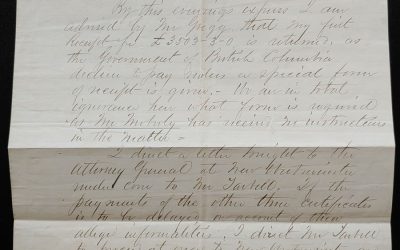 By this evenings express I am
advised by Mr Grigg that my first
Receipt for £3503-3-0 is returned, as
the Government of British Columbia
decline to pay unless a special form
of receipt is given. - We are in total
ignorance here what form is required
as Mr Moberly has received no instructions
in the matter -
I direct a letter tonight to the
Attorney General at New Westminster
under cover to Mr Tarbell. If the
payments of the other three Certificates
is to be delayed on account of these
alleged informalities, I direct Mr Tarbell